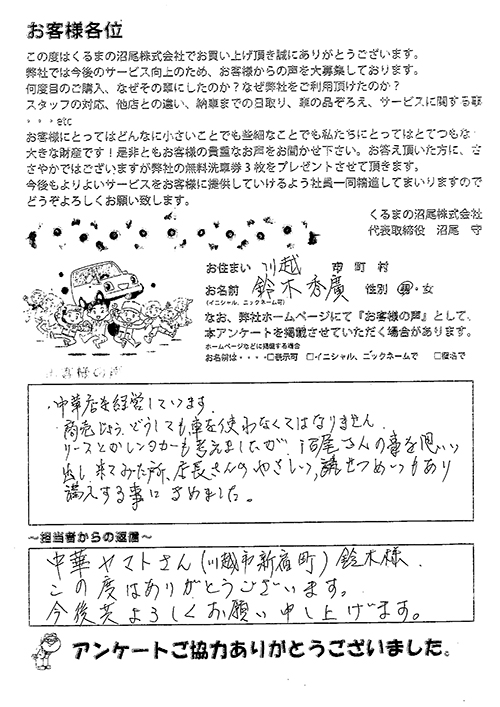 お客様各位
この度はくるまの沼尾株式会社でお買い上げ頂き誠にありがとうございます。
弊社では今後のサービス向上のため、お客様からの声を大募集しております。
何度目のご購入、なぜその車にしたのか？なぜ弊社をご利用頂けたのか？
スタッフの対応、他店との違い、納車までの日取り、車の品ぞろえ、サービスに関する事
・・・etc
お客様にとってはどんなに小さいことでも些細なことでも私たちにとってはとてつもな
大きな財産です！是非ともお客様の貴重なお声をお聞かせ下さい。お答え頂いた方に、さ
さやかではございますが弊社の無料洗車券３枚をプレゼントさせて頂きます。
今後もよりよいサービスをお客様に提供していけるよう社員一同精進してまいりますので
どうぞよろしくお願い致します。
くるまの沼尾株式会社
代表取締役 沼尾 守
お住まい 川越 市 町 村
お名前 鈴木秀廣 性別 男・女
(イニシャル、ニックネーム可)
なお、弊社ホームページにて『お客様の声』として、
本アンケートを掲載させていただく場合があります。
ホームページなどに掲載する場合
お名前は・・・・□表示可 □イニシャル、ニックネームで □仮名で
お客様の声
・中華店を経営しています。
商売じょう、どうしても車を使わなくてはなりません。
リースとかレンタカーも考えましたが、沼尾さんの事を思い
出し来てみた所、店長さんのやさしい、せつめいもあり
購入する事にきめました。
～担当者からの返信～
中華ヤマトさん(川越市新宿町)鈴木様
この度はありがとうございます。
今後共よろしくお願い申し上げます。
アンケートご協力ありがとうございました。